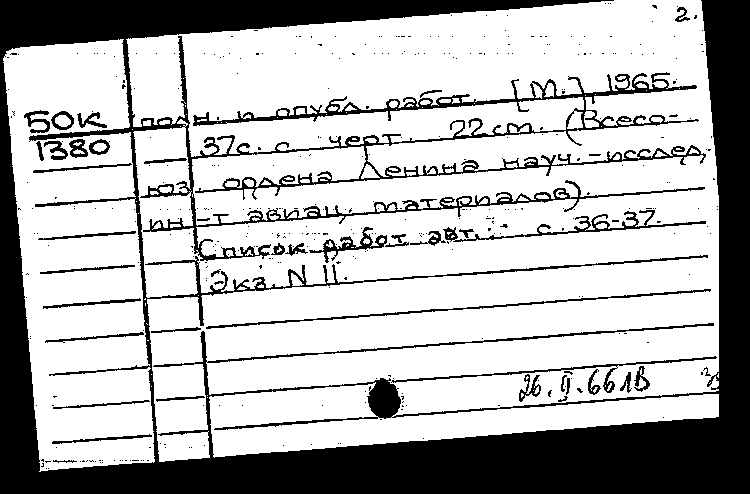 2.
50К
1380
полн. и опубл. работ. [М.], 1965.
37с. с черт. 22 cm. (Всесо-
юз. ордена Ленина науч.-исслед.
ин-т авиац. материалов).
Список работ авт.: с. 36-37.
Экз. N 11.
26.II.66